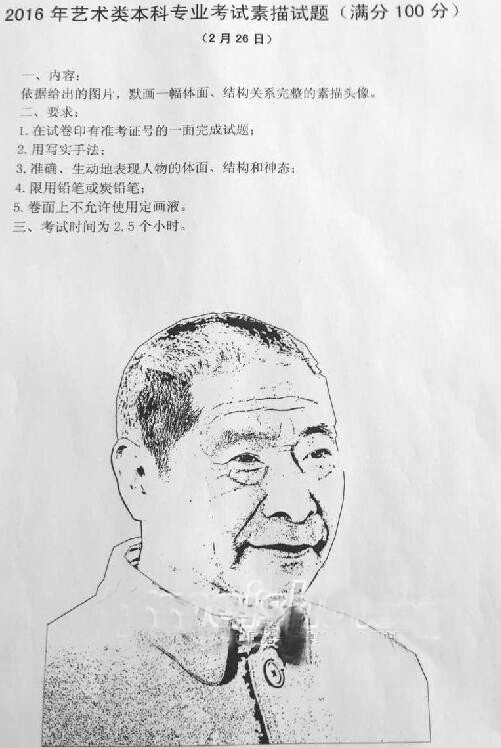 2016 年艺术类本科专业考试素描试题（满分 100 分）
（2 月 26 日）
一、内容：
依据给出的图片，默画一幅体面、结构关系完整的素描头像。
二、要求：
1. 在试卷印有准考证号的一面完成试题；
2. 用写实手法；
3. 准确、生动地表现人物的体面、结构和神态；
4. 限用铅笔或炭铅笔；
5. 卷面上不允许使用定画液。
三、考试时间为 2.5 个小时。